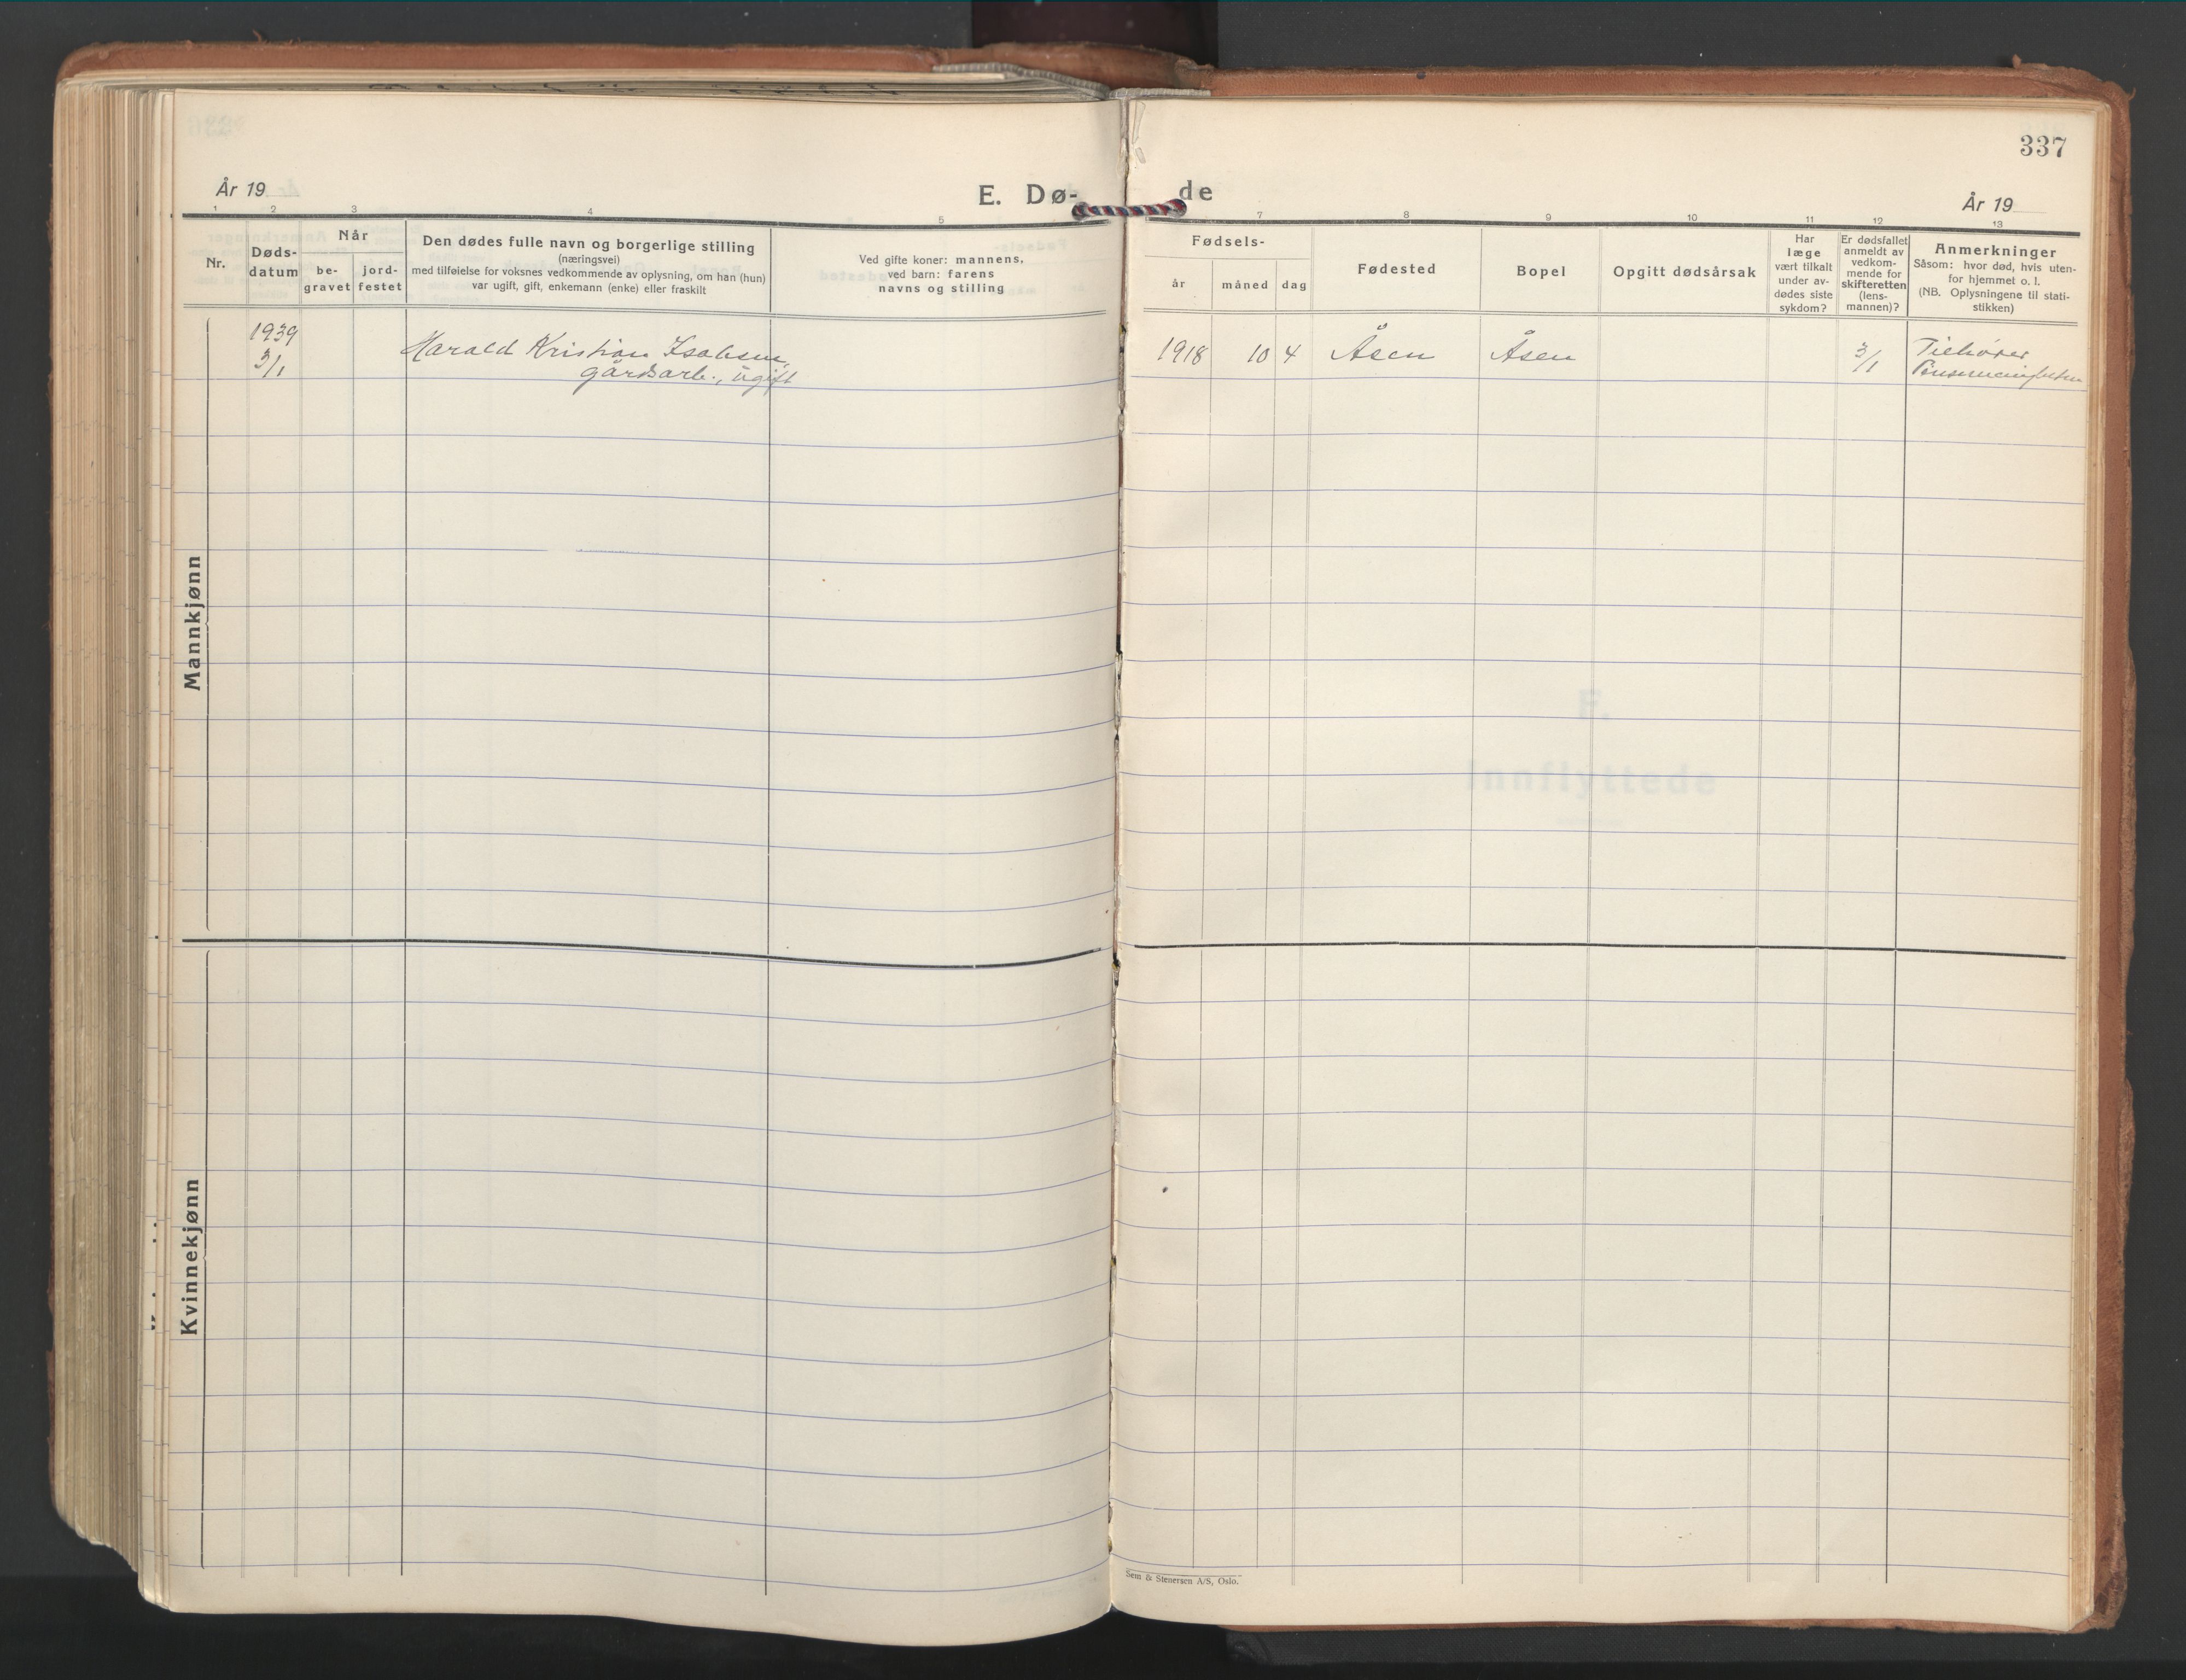 337
År 19
E. Dø-
de
År 19
1
2
3
4
5
7
8
9
10
11
12
13
Nr.
Døds-
datum
Når
be-
gravet
jord-
festet
Den dødes fulle navn og borgerlige stilling
(næringsvei)
med tilføielse for voksnes vedkommende av oplysning, om han (hun)
var ugift, gift, enkemann (enke) eller fraskilt
Ved gifte koner: mannens,
ved barn: farens
navns og stilling
Fødsels-
år
måned
dag
Fødested
Bopel
Opgitt dødsårsak
Har
læge
vært tilkalt
under av-
dødes siste
sykdom?
Er dødsfallet
anmeldt av
vedkom-
mende for
skifteretten
(lens-
mannen)?
Anmerkninger
Såsom: hvor død, hvis uten-
for hjemmet o. l.
(NB. Oplysningene til stati-
stikken)
1939
3/1
Harald Kristian
gårdsarb., ugift
1918
10
4
Åsen
Åsen
3/1
Tilhører
Mannkjønn
Kvinnekjønn
F.
Innflyttede
Sem & Stenersen A/S, Oslo.